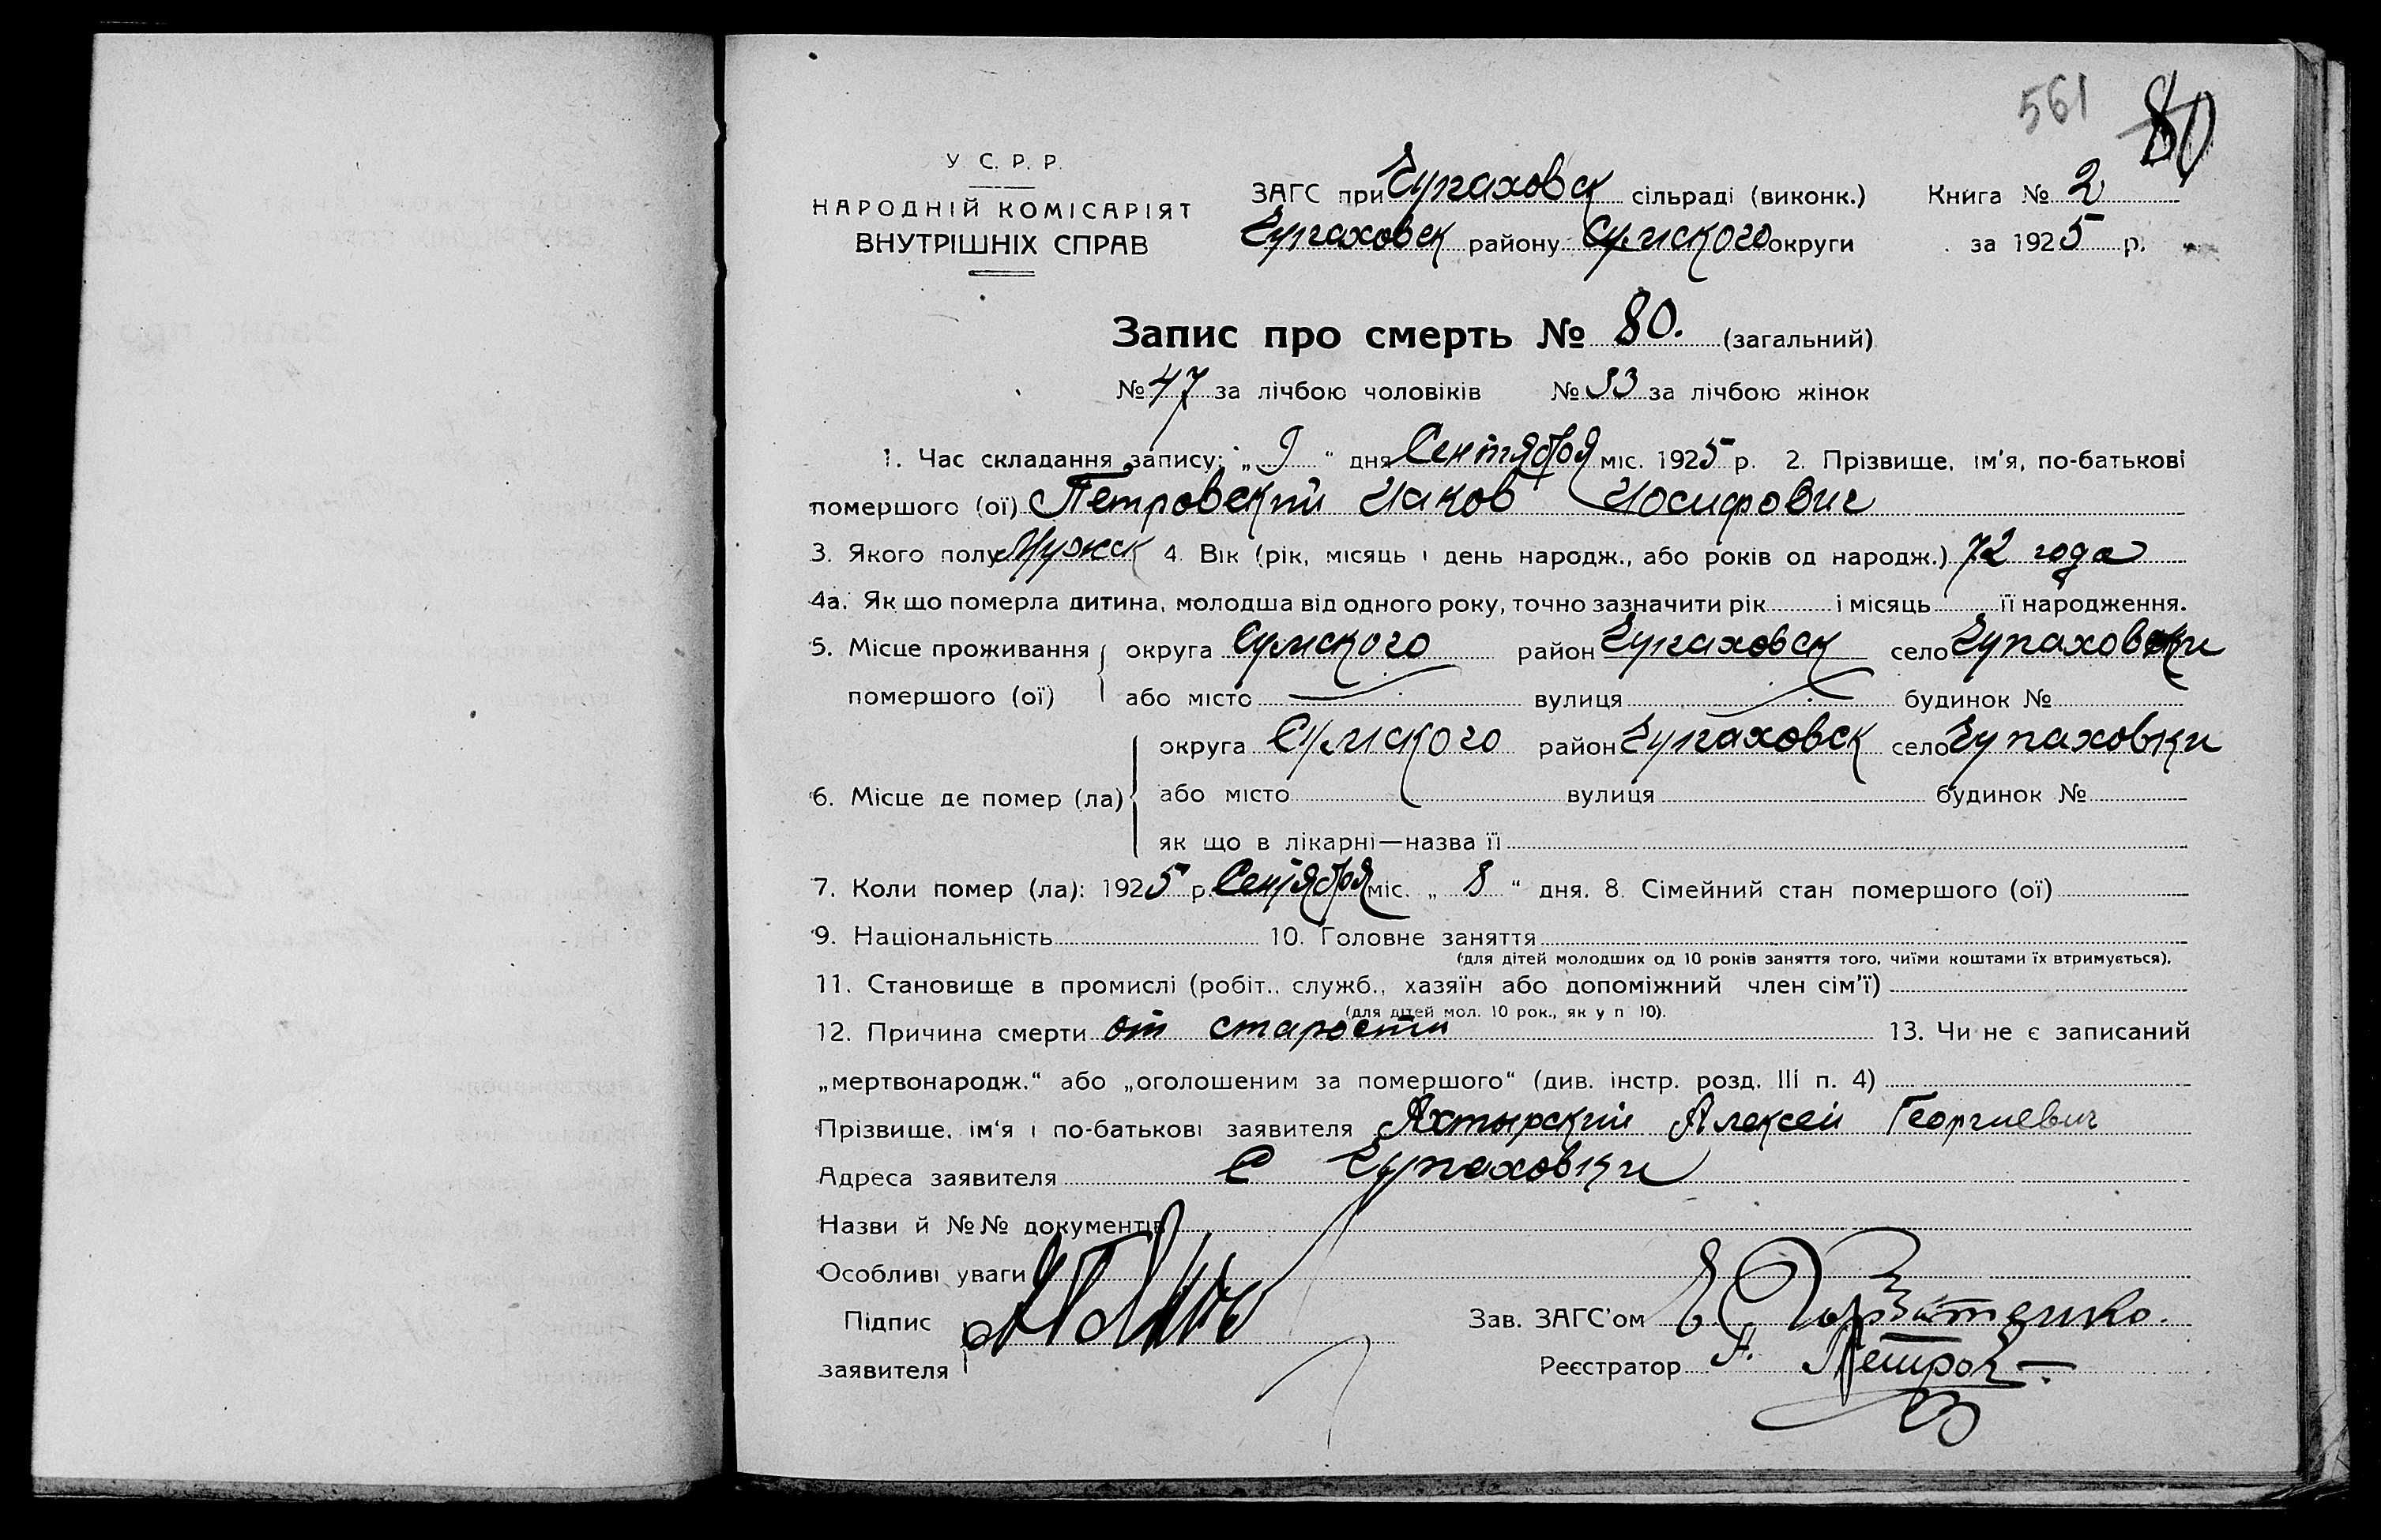 561 80
У С. Р. Р.
НАРОДНІЙ КОМІСАРІЯТ
ВНУТРІШНІХ СПРАВ
ЗАГС при Чупаховск сільраді (виконк.) Книга № 2
Чупаховск району Сумского округи за 1925 р.
Запис про смерть № 80. (загальний)
№ 47 за лічбою чоловіків № 33 за лічбою жінок
1. Час складання запису: „ 9 “ дня Сентября міс. 1925 р. 2. Прізвище, ім'я, по-батькові
помершого (ої) Петровский Иаков Иосифович
3. Якого полу Мужск 4. Вік (рік, місяць і день народж., або років од народж.) 72 года
4а. Як що померла дитина, молодша від одного року, точно зазначити рік і місяць її народження.
5. Місце проживання округа Сумского район Чупаховск село Чупаховки
помершого (ої) або місто вулиця будинок №
округа Сумского район Чупаховск село Чупаховки
6. Місце де помер (ла) або місто вулиця будинок №
як що в лікарні—назва її
7. Коли помер (ла): 1925 р. Сентября міс. „ 8 “ дня. 8. Сімейний стан помершого (ої)
9. Національність 10. Головне заняття
(для дітей молодших од 10 років заняття того, чиїми коштами їх втримується).
11. Становище в промислі (робіт.. служб., хазяїн або допоміжний член сім'ї)
(для дітей мол. 10 рок., як у п 10).
12. Причина смерти от старости 13. Чи не є записаний
„мертвонародж.“ або „оголошеним за помершого“ (див. інстр. розд. III п. 4)
Прізвище, ім'я і по-батькові заявителя Ахтырский Алексей Георгиевич
Адреса заявителя С Чупаховки
Назви й №№ документів
Особливі уваги
Підпис Зав. ЗАГС'ом
заявителя Реєстратор А. Петров